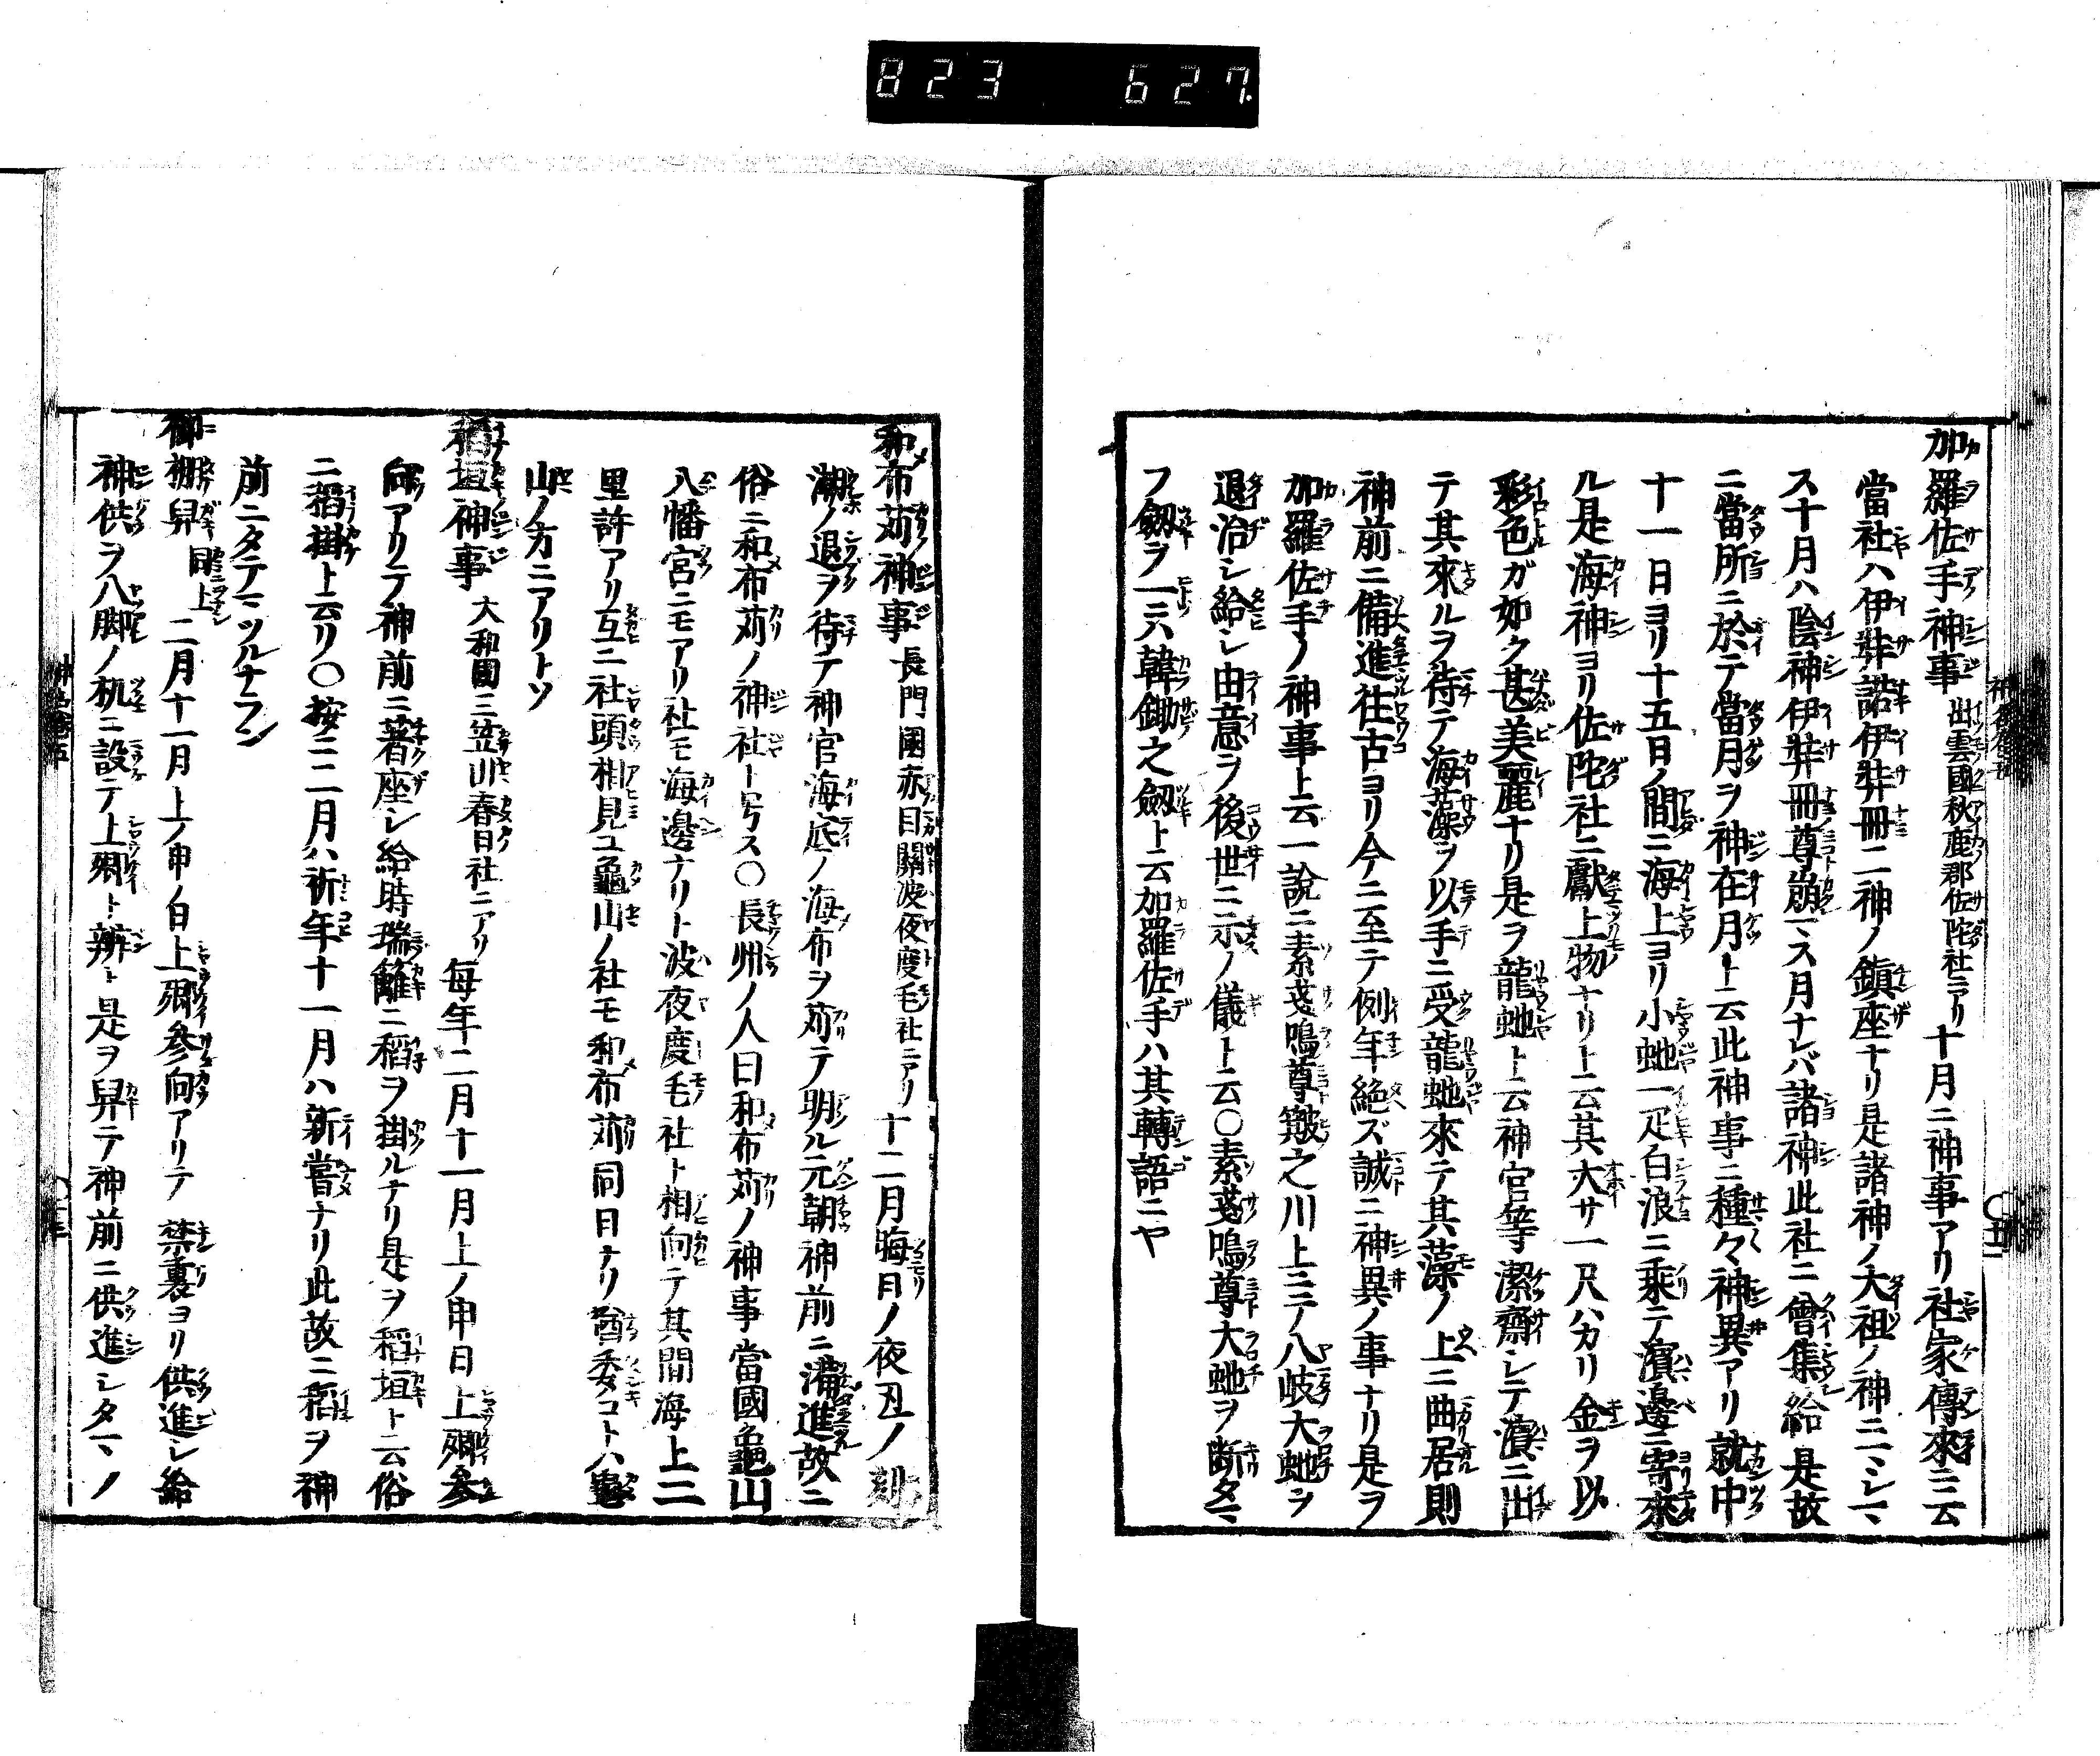 823 627.
加羅佐手神事 出雲國秋鹿郡佐陀社ニアリ 十月ニ神事アリ社家傳來ニ云
當社ハ伊弉諾伊弉冊二神ノ鎮座ナリ是諸神ノ大祖ノ神ニマシマ
ス十月ハ陰神伊弉冊尊崩マス月ナレバ諸神此社ニ會集給是故
ニ當所ニ於テ當月ヲ神在月ト云此神事ニ種々神異アリ就中
十一日ヨリ十五日ノ間ニ海上ヨリ小虵一疋白浪ニ乘テ濱邊ニ寄來
ル是海神ヨリ佐陀社ニ獻上物ナリト云其大サ一尺ハカリ金ヲ以
彩色ガ如ク甚美麗ナリ是ヲ龍虵ト云神官等潔齋シテ濱ニ出
テ其來ルヲ待テ海藻ヲ以手ニ受龍虵來テ其藻ノ上ニ曲居則
神前ニ備進往古ヨリ今ニ至テ例年絶ズ誠ニ神異ノ事ナリ是ヲ
加羅佐手ノ神事ト云一說ニ素戔嗚尊簸之川上ニテ八岐大虵ヲ
退治シ給シ由意ヲ後世ニ示ノ儀ト云○素戔嗚尊大虵ヲ断タマ
フ劔ヲ一ニハ韓鋤之劔ト云加羅佐手ハ其轉語ニヤ
和布苅神事 長門國赤目關波夜度毛社ニアリ 十二月晦日ノ夜丑ノ刻
潮ノ退ヲ待テ神官海底ノ海布ヲ苅テ明ル元朝神前ニ備進故ニ
俗ニ和布苅ノ神社ト号ス○長州ノ人曰和布苅ノ神事當國龜山
八幡宮ニモアリ社モ海邊ナリト波夜度毛社ト相向テ其間海上二
里許アリ互ニ社頭相見ユ龜山ノ社モ和布苅同日ナリ
山ノ方ニアリトソ
稻垣神事 大和國三笠山春日社ニアリ 每年二月十一月上ノ申日上卿參
向アリテ神前ニ著座シ給時瑞籬ニ稻ヲ掛ルナリ是ヲ稻垣ト云俗
ニ稻掛ト云リ○按ニ二月ハ祈年十一月ハ新嘗ナリ此故ニ稻ヲ神
前ニタテマツルナラン
御棚舁 同上 二月十一月上ノ申ノ日上卿參向アリテ 禁裏ヨリ供進シ給
神供ヲ八脚ノ机ニ設テ上卿ト辨ト是ヲ舁テ神前ニ供進シタマノ